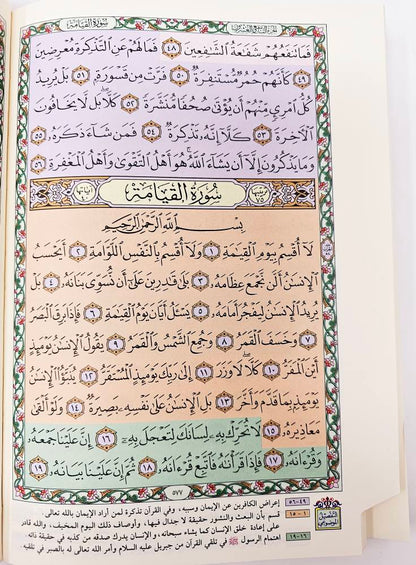 سُورَةُ القِيَامَةِ الجزء التاسع والعشرون
فَمَا تَنفَعُهُمْ شَفَٰعَةُ ٱلشَّٰفِعِينَ ٤٨ فَمَا لَهُمْ عَنِ ٱلتَّذْكِرَةِ مُعْرِضِينَ
٤٩ كَأَنَّهُمْ حُمُرٌ مُّسْتَنفِرَةٌ ٥٠ فَرَّتْ مِن قَسْوَرَةٍۭ ٥١ بَلْ يُرِيدُ
كُلُّ ٱمْرِئٍ مِّنْهُمْ أَن يُؤْتَىٰ صُحُفًا مُّنَشَّرَةً ٥٢ كَلَّا ۖ بَل لَّا يَخَافُونَ
ٱلْءَاخِرَةَ ٥٣ كَلَّآ إِنَّهُۥ تَذْكِرَةٌ ٥٤ فَمَن شَآءَ ذَكَرَهُۥ ٥٥
وَمَا يَذْكُرُونَ إِلَّآ أَن يَشَآءَ ٱللَّهُ ۚ هُوَ أَهْلُ ٱلتَّقْوَىٰ وَأَهْلُ ٱلْمَغْفِرَةِ ٥٦
ترتيبها ٧٥ سُورَةُ القِيَامَةِ آياتها ٤٠
بِسْمِ ٱللَّهِ ٱلرَّحْمَٰنِ ٱلرَّحِيمِ
لَآ أُقْسِمُ بِيَوْمِ ٱلْقِيَٰمَةِ ١ وَلَآ أُقْسِمُ بِٱلنَّفْسِ ٱللَّوَّامَةِ ٢ أَيَحْسَبُ
ٱلْإِنسَٰنُ أَلَّن نَّجْمَعَ عِظَامَهُۥ ٣ بَلَىٰ قَٰدِرِينَ عَلَىٰٓ أَن نُّسَوِّىَ بَنَانَهُۥ ٤ بَلْ
يُرِيدُ ٱلْإِنسَٰنُ لِيَفْجُرَ أَمَامَهُۥ ٥ يَسْـَٔلُ أَيَّانَ يَوْمُ ٱلْقِيَٰمَةِ ٦ فَإِذَا بَرِقَ ٱلْبَصَرُ
٧ وَخَسَفَ ٱلْقَمَرُ ٨ وَجُمِعَ ٱلشَّمْسُ وَٱلْقَمَرُ ٩ يَقُولُ ٱلْإِنسَٰنُ يَوْمَئِذٍ
أَيْنَ ٱلْمَفَرُّ ١٠ كَلَّا لَا وَزَرَ ١١ إِلَىٰ رَبِّكَ يَوْمَئِذٍ ٱلْمُسْتَقَرُّ ١٢ يُنَبَّؤُا۟ ٱلْإِنسَٰنُ
يَوْمَئِذٍۭ بِمَا قَدَّمَ وَأَخَّرَ ١٣ بَلِ ٱلْإِنسَٰنُ عَلَىٰ نَفْسِهِۦ بَصِيرَةٌ ١٤ وَلَوْ أَلْقَىٰ
مَعَاذِيرَهُۥ ١٥ لَا تُحَرِّكْ بِهِۦ لِسَانَكَ لِتَعْجَلَ بِهِۦٓ ١٦ إِنَّ عَلَيْنَا جَمْعَهُۥ
وَقُرْءَانَهُۥ ١٧ فَإِذَا قَرَأْنَٰهُ فَٱتَّبِعْ قُرْءَانَهُۥ ١٨ ثُمَّ إِنَّ عَلَيْنَا بَيَانَهُۥ ١٩
٥٧٧
٤٩-٥٦ إعراض الكافرين عن الإيمان وسببه، وفي القرآن تذكرة لمن أراد الإيمان بالله تعالى.
١-١٥ قسم بأن البعث والنشور حقيقة لا جدال فيها، وأوصاف ذلك اليوم المخيف، والله قادر
على إعادة خلق الإنسان كما يشاء سبحانه، والإنسان يدرك صدقه من كذبه في حقيقة ذاته.
١٦-١٩ اهتمام الرسول ﷺ في تلقي القرآن من جبريل عليه السلام وأمر الله تعالى له بالصبر في تلقيه.